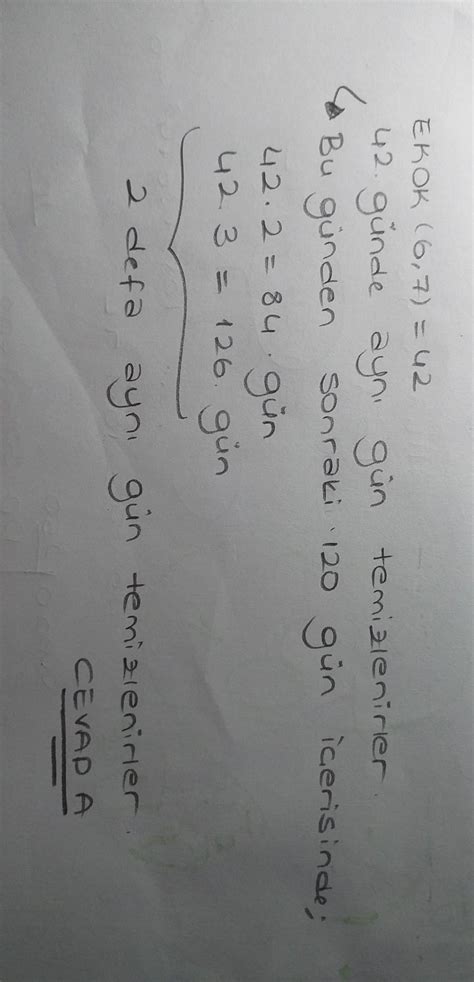 EKOK (6,7) = 42
42. günde aynı gün temizlenirler.
↳ Bu günden sonraki 120 gün içerisinde;
42 . 2 = 84. gün
42. 3 = 126. gün
2 defa aynı gün temizlenirler.
CEVAP A